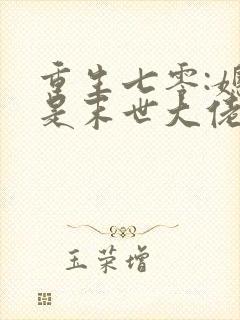 重生七零:媳
是末世大佬
玉荣增